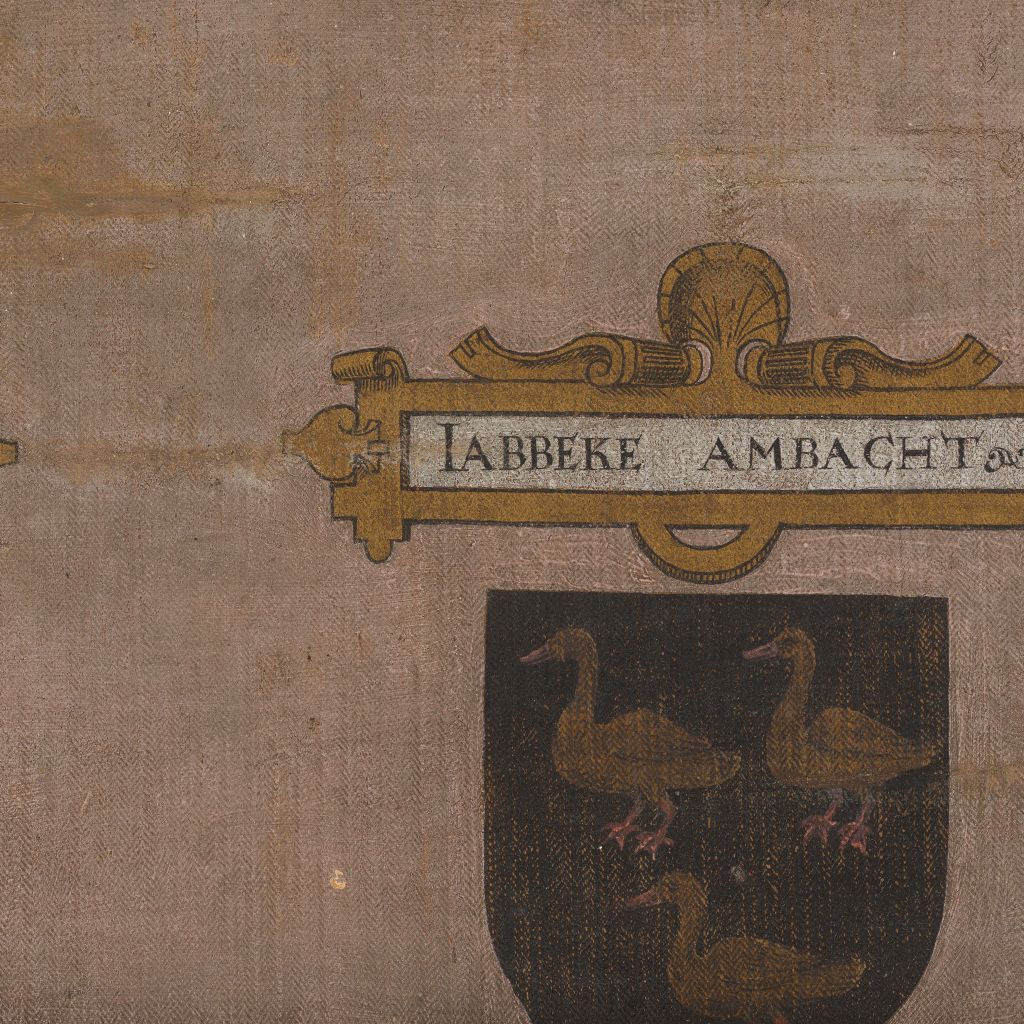 IABBEKE AMBACHT